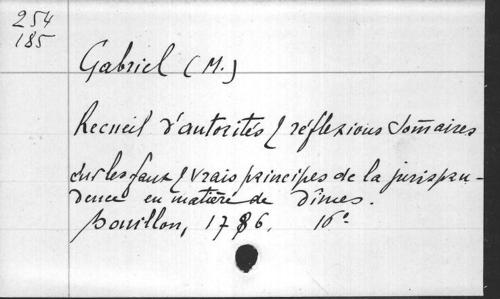 254
185
Gabriel (M.)
Recueil d'autorités & réflexions somaires
sur les faux & vrais principes de la jurispru-
dence en matière de Dîmes.
Bouillon, 1786. 16°